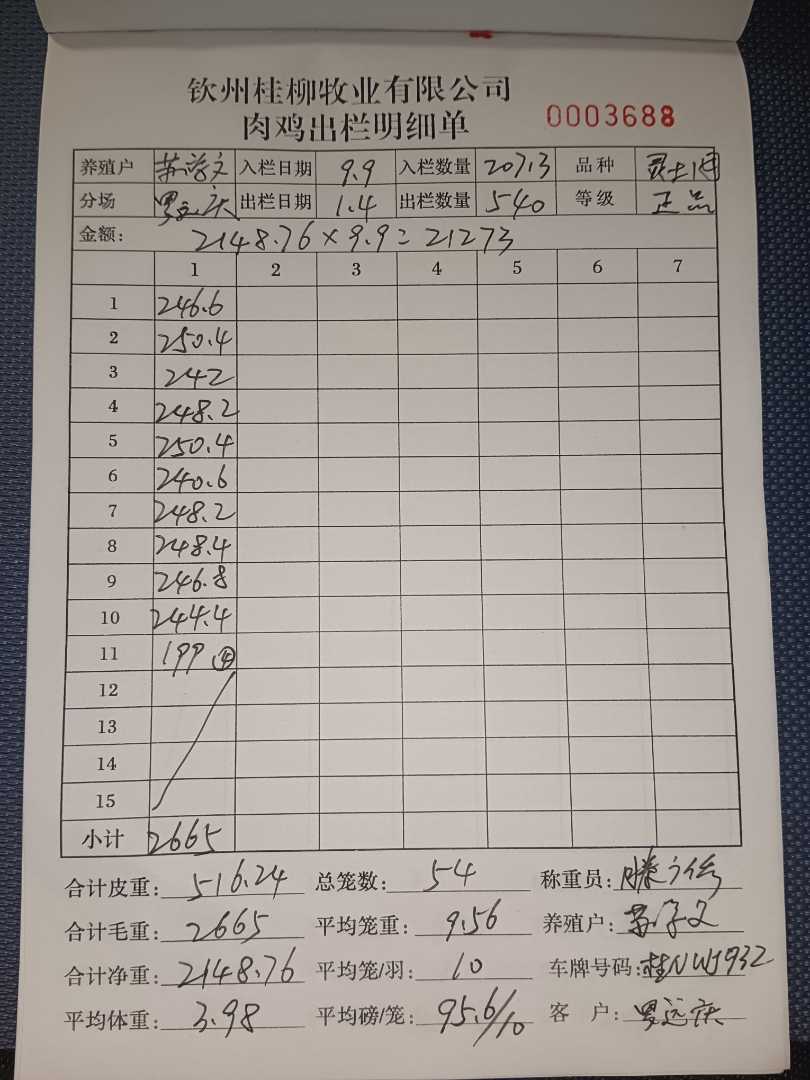 钦州桂柳牧业有限公司
肉鸡出栏明细单 0003688
养殖户 入栏日期 9.9 入栏数量 20713 品种
分场 罗远庆 出栏日期 1.4 出栏数量 540 等级 正品
金额: 2148.76×9.9=21273
1 2 3 4 5 6 7
1 246.6
2 250.4
3 242
4 248.2
5 250.4
6 240.6
7 248.2
8 248.4
9 246.8
10 244.4
11 199 ④
12
13
14
15
小计 2665
合计皮重: 516.24 总笼数: 54 称重员: 滕
合计毛重: 2665 平均笼重: 9.56 养殖户:
合计净重: 2148.76 平均笼/羽: 10 车牌号码: 桂NWJ932
平均体重: 3.98 平均磅/笼: 95.6/10 客 户: 罗远庆